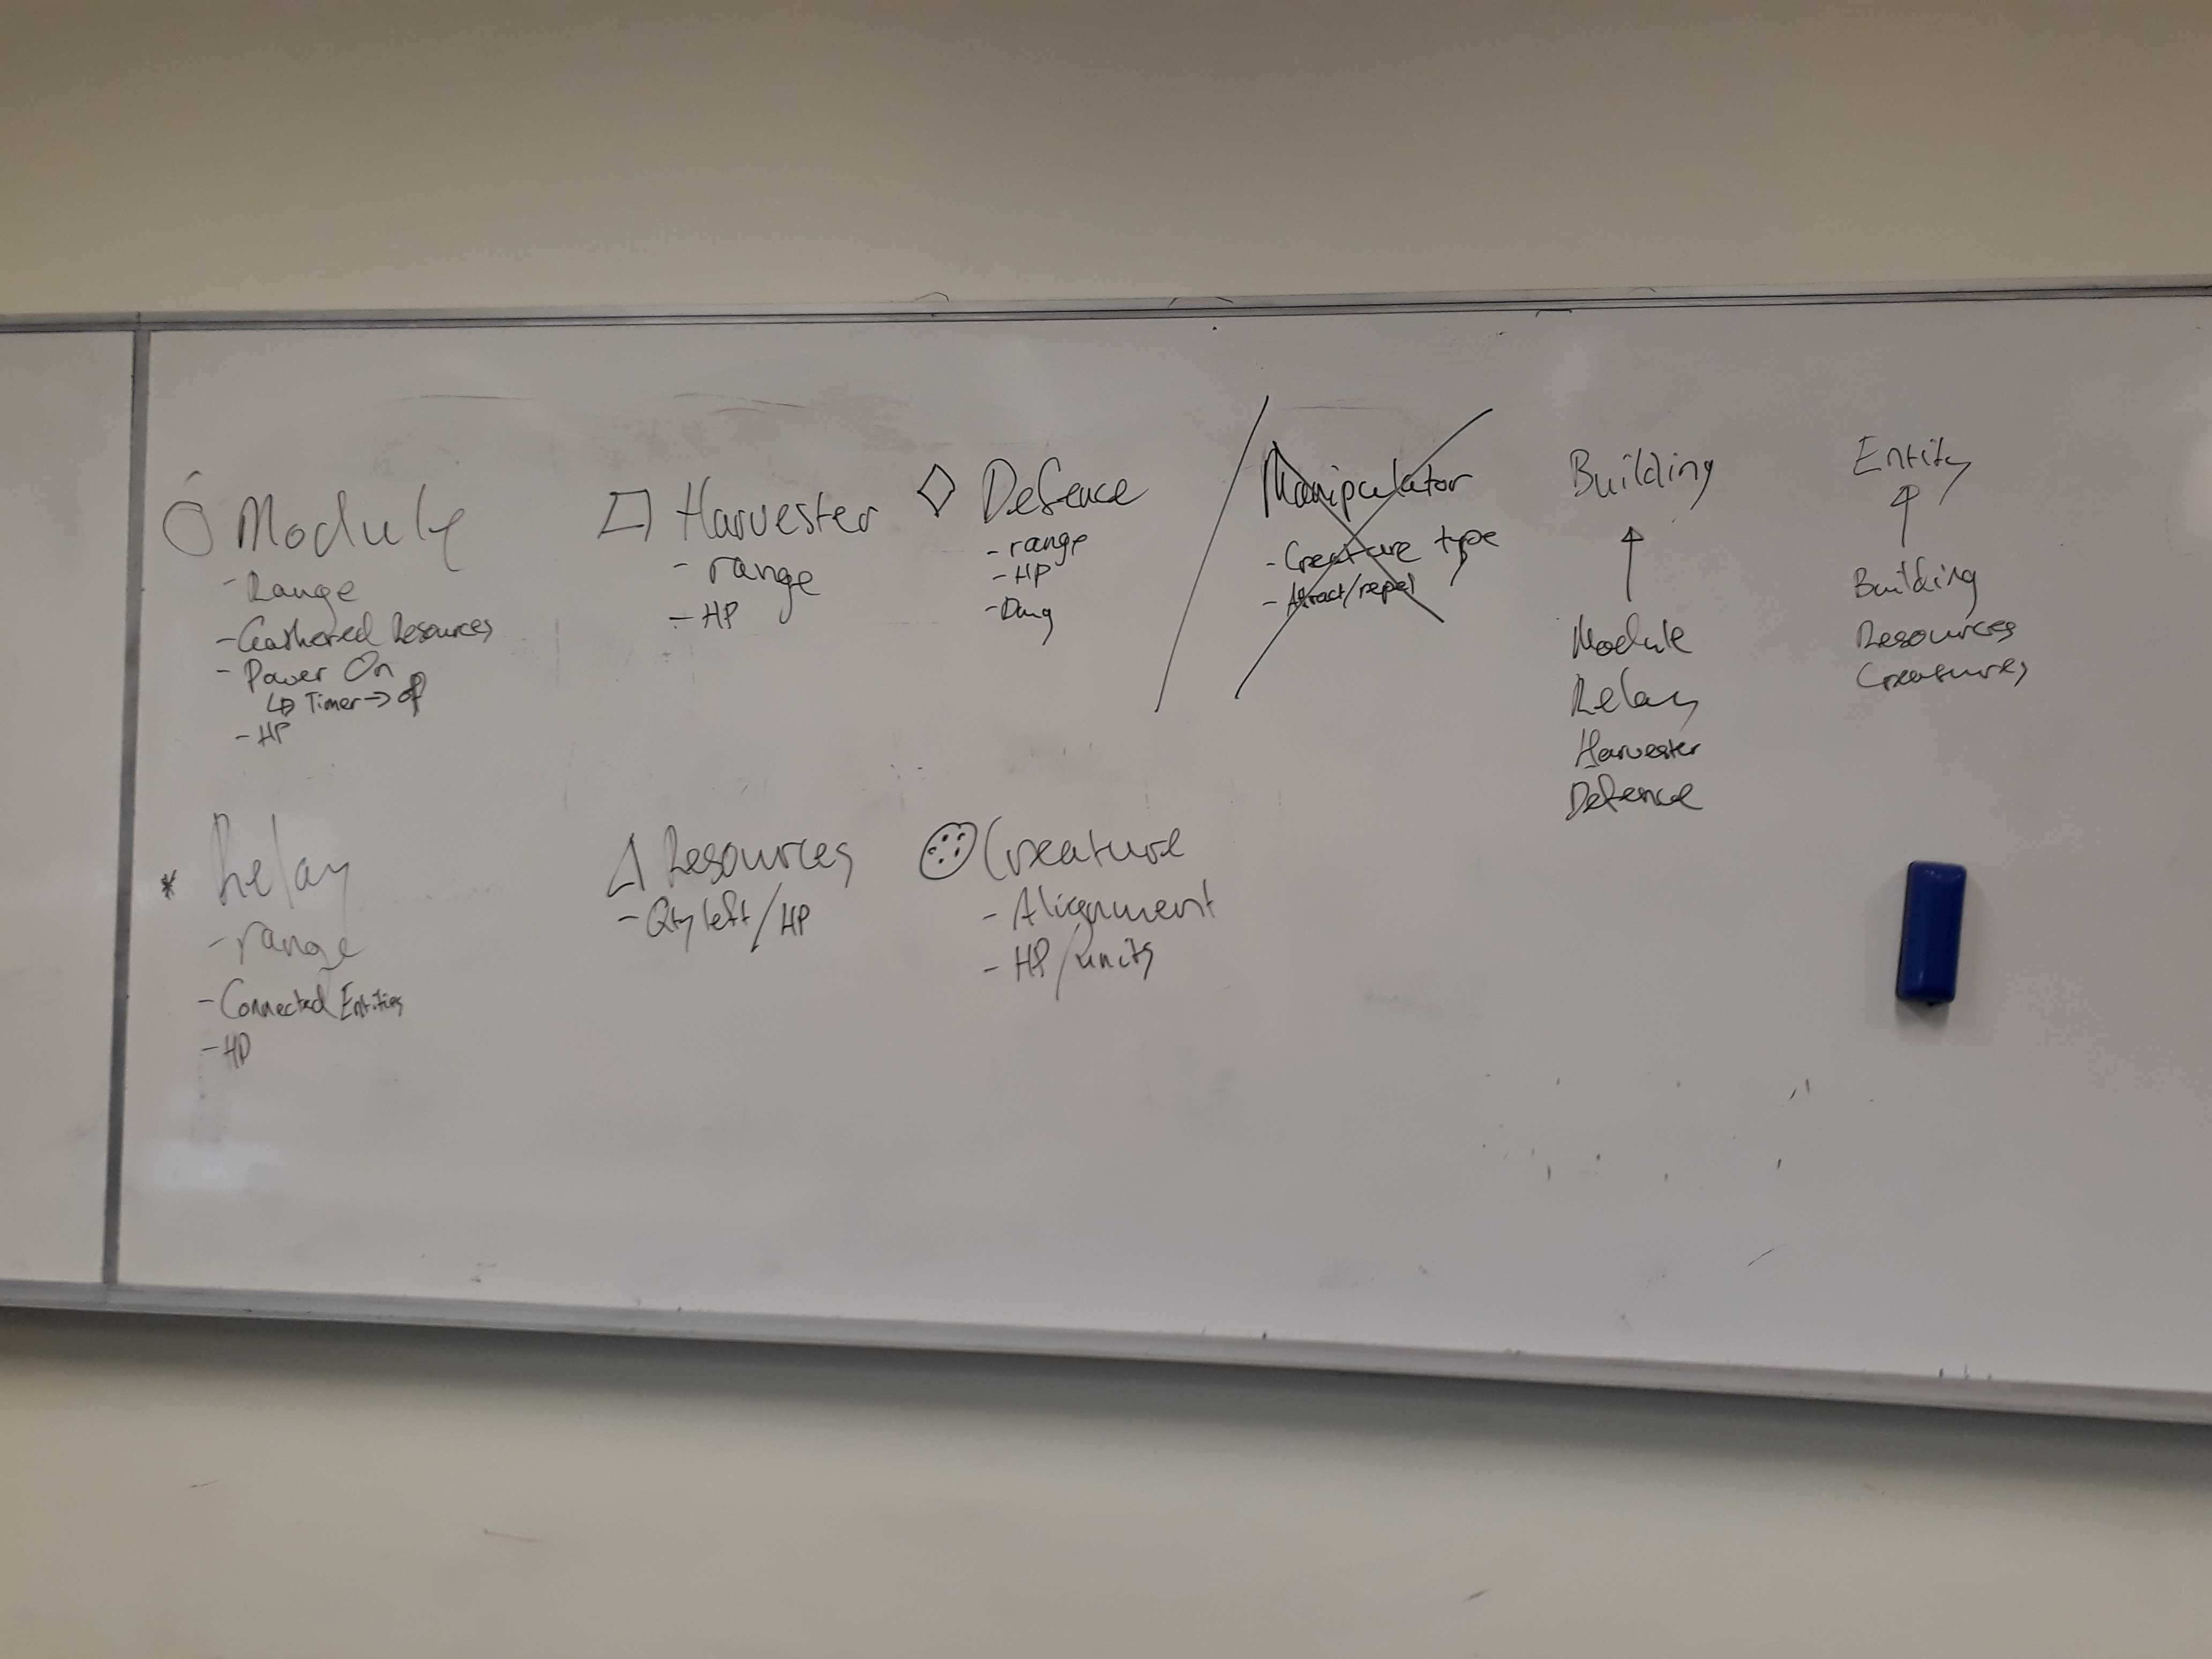 Module
- Range
- Gathered Resources
- Power On
↳ Timer → off
- HP
Harvester
- range
- HP
Defence
- range
- HP
- Dmg
Manipulator
- Creature type
- Attract/repel
Building
↑
Module
Relay
Harvester
Defence
Entity
↑
Building
Resources
Creatures
* Relay
- range
- Connected Entities
- HP
Resources
- Qty left/HP
Creature
- Alignment
- HP/units